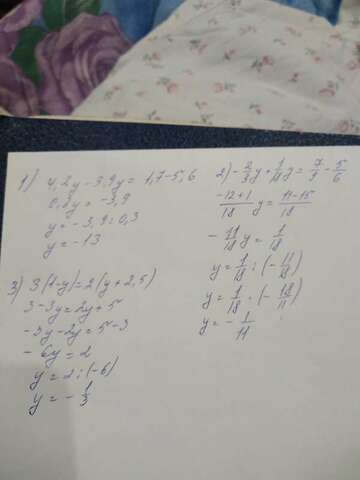 1) 4,2y-3,9y=1,7-5,6
0,3y=-3,9
y=-3,9:0,3
y=-13
2) -2/3y+1/18y=7/9-5/6
-12+1/18 y=14-15/18
-11/18y=1/18
y=1/18:(-11/18)
y=1/18·(-18/11)
y=-1/11
3) 3(1-y)=2(y+2,5)
3-3y=2y+5
-3y-2y=5-3
-6y=2
y=2:(-6)
y=-1/3